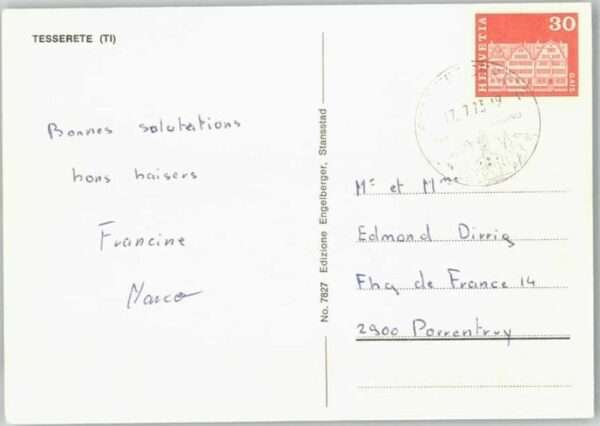 TESSERETE (TI)
Bonnes salutations
bons baisers
Francine
Marco
No. 7827 Edizione Engelberger, Stansstad
HELVETIA
30
GAIS
Mr et Mme
Edmond
Fbg de France 14
2900 Porrentruy